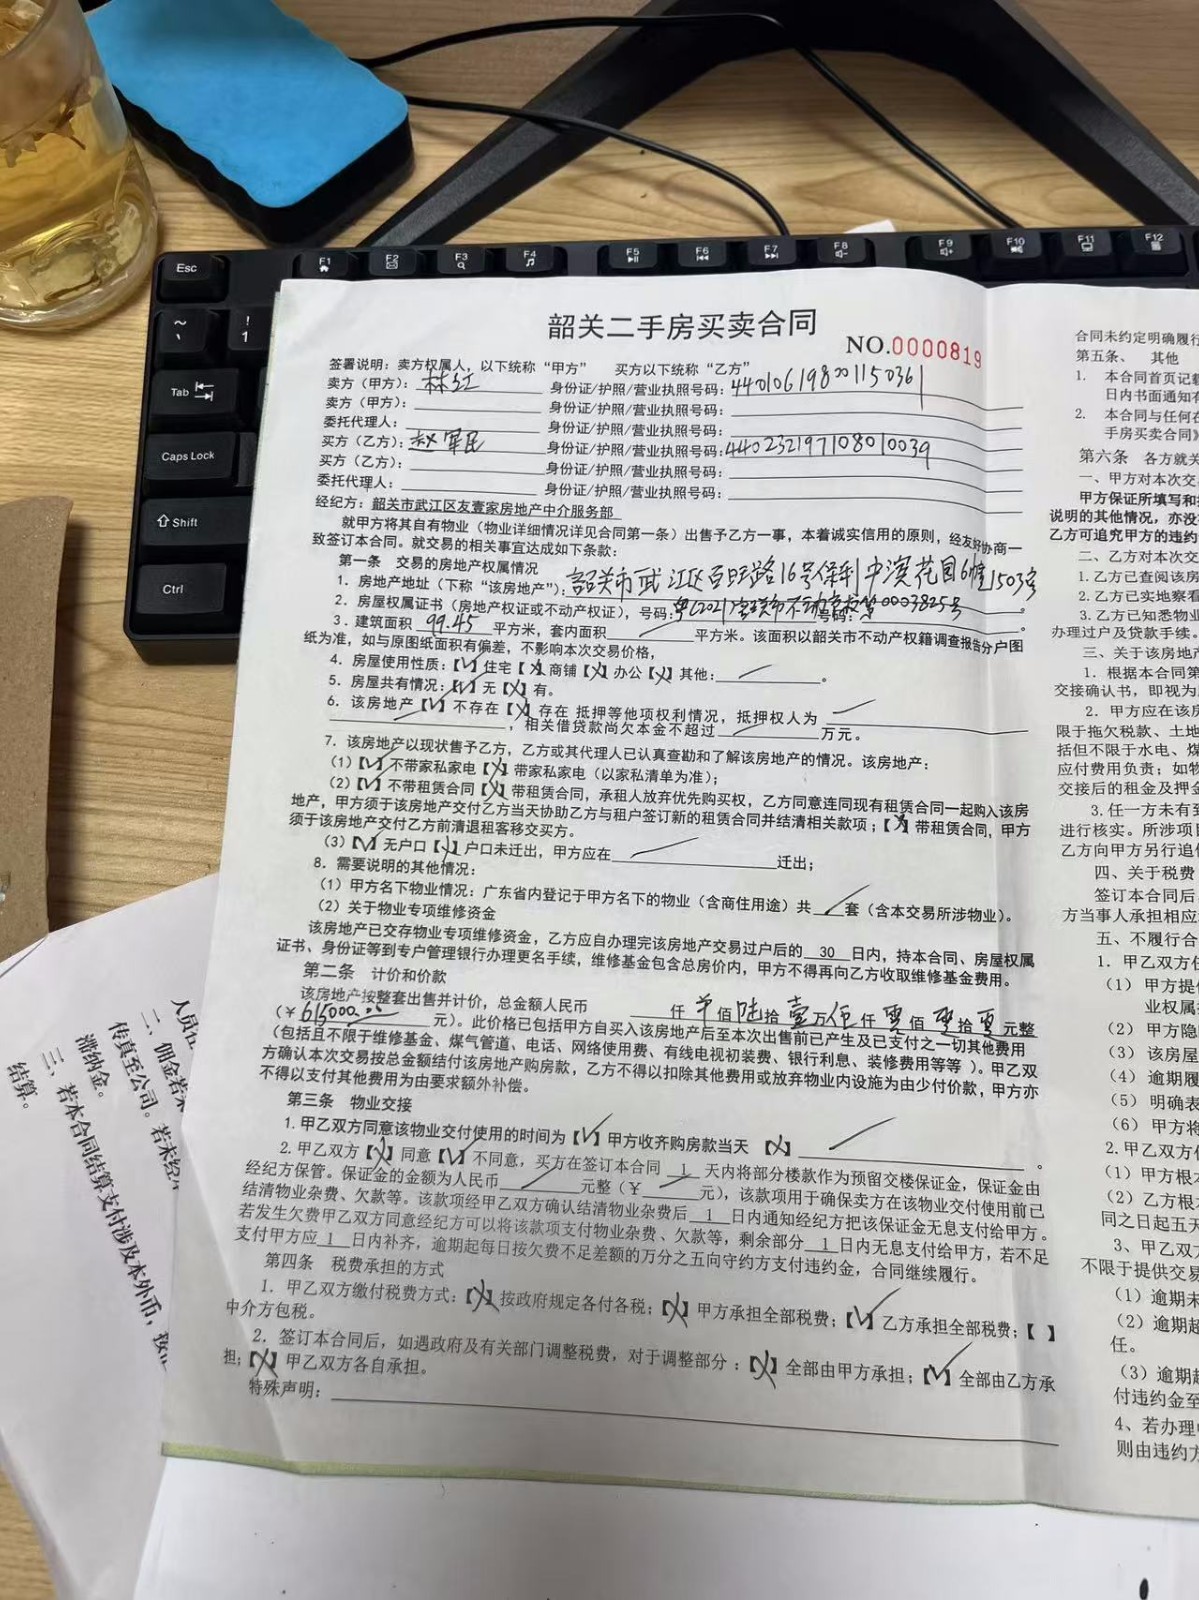 Esc
F1
F2
F3
F4
F5
F6
F7
F8
F9
F10
F11
F12
~
!
1
Tab
Caps Lock
Shift
Ctrl
韶关二手房买卖合同
NO.0000819
签署说明：卖方权属人，以下统称“甲方” 买方以下统称“乙方”
卖方（甲方）：林红 身份证/护照/营业执照号码：440106198001150361
卖方（甲方）： 身份证/护照/营业执照号码：
委托代理人： 身份证/护照/营业执照号码：
买方（乙方）：赵军民 身份证/护照/营业执照号码：440232197108010039
买方（乙方）： 身份证/护照/营业执照号码：
委托代理人： 身份证/护照/营业执照号码：
经纪方：韶关市武江区友壹家房地产中介服务部
就甲方将其自有物业（物业详细情况详见合同第一条）出售予乙方一事，本着诚实信用的原则，经友好协商一
致签订本合同。就交易的相关事宜达成如下条款：
第一条 交易的房地产权属情况
1．房地产地址（下称“该房地产”）：韶关市武江区百旺路16号保利中澳花园6幢1503房
2．房屋权属证书（房地产权证或不动产权证），号码：粤(2021)韶关市不动产权第0003825号 。
3．建筑面积 99.45 平方米，套内面积 平方米。该面积以韶关市不动产权籍调查报告分户图
纸为准，如与原图纸面积有偏差，不影响本次交易价格，
4．房屋使用性质：【√】住宅【×】商铺【×】办公【×】其他： 。
5．房屋共有情况：【√】无【×】有。
6．该房地产【√】不存在【×】存在 抵押等他项权利情况，抵押权人为
，相关借贷款尚欠本金不超过 万元。
7．该房地产以现状售予乙方，乙方或其代理人已认真查勘和了解该房地产的情况。该房地产：
（1）【√】不带家私家电【×】带家私家电（以家私清单为准）；
（2）【√】不带租赁合同【×】带租赁合同，承租人放弃优先购买权，乙方同意连同现有租赁合同一起购入该房
地产，甲方须于该房地产交付乙方当天协助乙方与租户签订新的租赁合同并结清相关款项；【×】带租赁合同，甲方
须于该房地产交付乙方前清退租客移交买方。
（3）【√】无户口【×】户口未迁出，甲方应在 迁出；
8．需要说明的其他情况：
（1）甲方名下物业情况：广东省内登记于甲方名下的物业（含商住用途）共 套（含本交易所涉物业）。
（2）关于物业专项维修资金
该房地产已交存物业专项维修资金，乙方应自办理完该房地产交易过户后的 30 日内，持本合同、房屋权属
证书、身份证等到专户管理银行办理更名手续，维修基金包含总房价内，甲方不得再向乙方收取维修基金费用。
第二条 计价和价款
该房地产按整套出售并计价，总金额人民币 仟 佰陆拾壹万伍仟零佰零拾零元整
（￥615000.00 元）。此价格已包括甲方自买入该房地产后至本次出售前已产生及已支付之一切其他费用
（包括且不限于维修基金、煤气管道、电话、网络使用费、有线电视初装费、银行利息、装修费用等等 ）。甲乙双
方确认本次交易按总金额结付该房地产购房款，乙方不得以扣除其他费用或放弃物业内设施为由少付价款，甲方亦
不得以支付其他费用为由要求额外补偿。
第三条 物业交接
1.甲乙双方同意该物业交付使用的时间为【√】甲方收齐购房款当天 【×】 。
2.甲乙双方【×】同意【√】不同意，买方在签订本合同 1 天内将部分楼款作为预留交楼保证金，保证金由
经纪方保管。保证金的金额为人民币 元整（￥ 元），该款项用于确保卖方在该物业交付使用前已
结清物业杂费、欠款等。该款项经甲乙双方确认结清物业杂费后 1 日内通知经纪方把该保证金无息支付给甲方。
若发生欠费甲乙双方同意经纪方可以将该款项支付物业杂费、欠款等，剩余部分 1 日内无息支付给甲方，若不足
支付甲方应 1 日内补齐，逾期起每日按欠费不足差额的万分之五向守约方支付违约金，合同继续履行。
第四条 税费承担的方式
1．甲乙双方缴付税费方式：【×】按政府规定各付各税；【×】甲方承担全部税费；【√】乙方承担全部税费；【 】
中介方包税。
2．签订本合同后，如遇政府及有关部门调整税费，对于调整部分：【×】全部由甲方承担；【√】全部由乙方承
担；【×】甲乙双方各自承担。
特殊声明：
合同未约定明确履行
第五条、 其他
1． 本合同首页记载
日内书面通知有
2． 本合同与任何在
手房买卖合同》
第六条 各方就关
一、甲方对本次交
甲方保证所填写和
说明的其他情况，亦没
乙方可追究甲方的违约
二、乙方对本次交
1.乙方已查阅该房
2.乙方已实地察看
3.乙方已知悉物业
办理过户及贷款手续。
三、关于该房地产
1．根据本合同第
交接确认书，即视为
2．甲方应在该房
限于拖欠税款、土地
括但不限于水电、煤
应付费用负责；如物
交接后的租金及押金
3.任一方未有到
进行核实。所涉项目
乙方向甲方另行追偿
四、关于税费
签订本合同后
方当事人承担相应
五、不履行合
1．甲乙双方任
（1）甲方提供
业权属
（2）甲方隐
（3）该房屋
（4）逾期履
（5）明确表
（6）甲方将
2.甲乙双方任
（1）甲方根本
（2）乙方根本
同之日起五天
3、甲乙双方
不限于提供交易
（1）逾期未
（2）逾期超
任。
（3）逾期超
付违约金至
4、若办理中
则由违约方
人员在
二、佣金若未
传真至公司。若未经
滞纳金。
三、若本合同结算支付涉及本外币，按
结算。